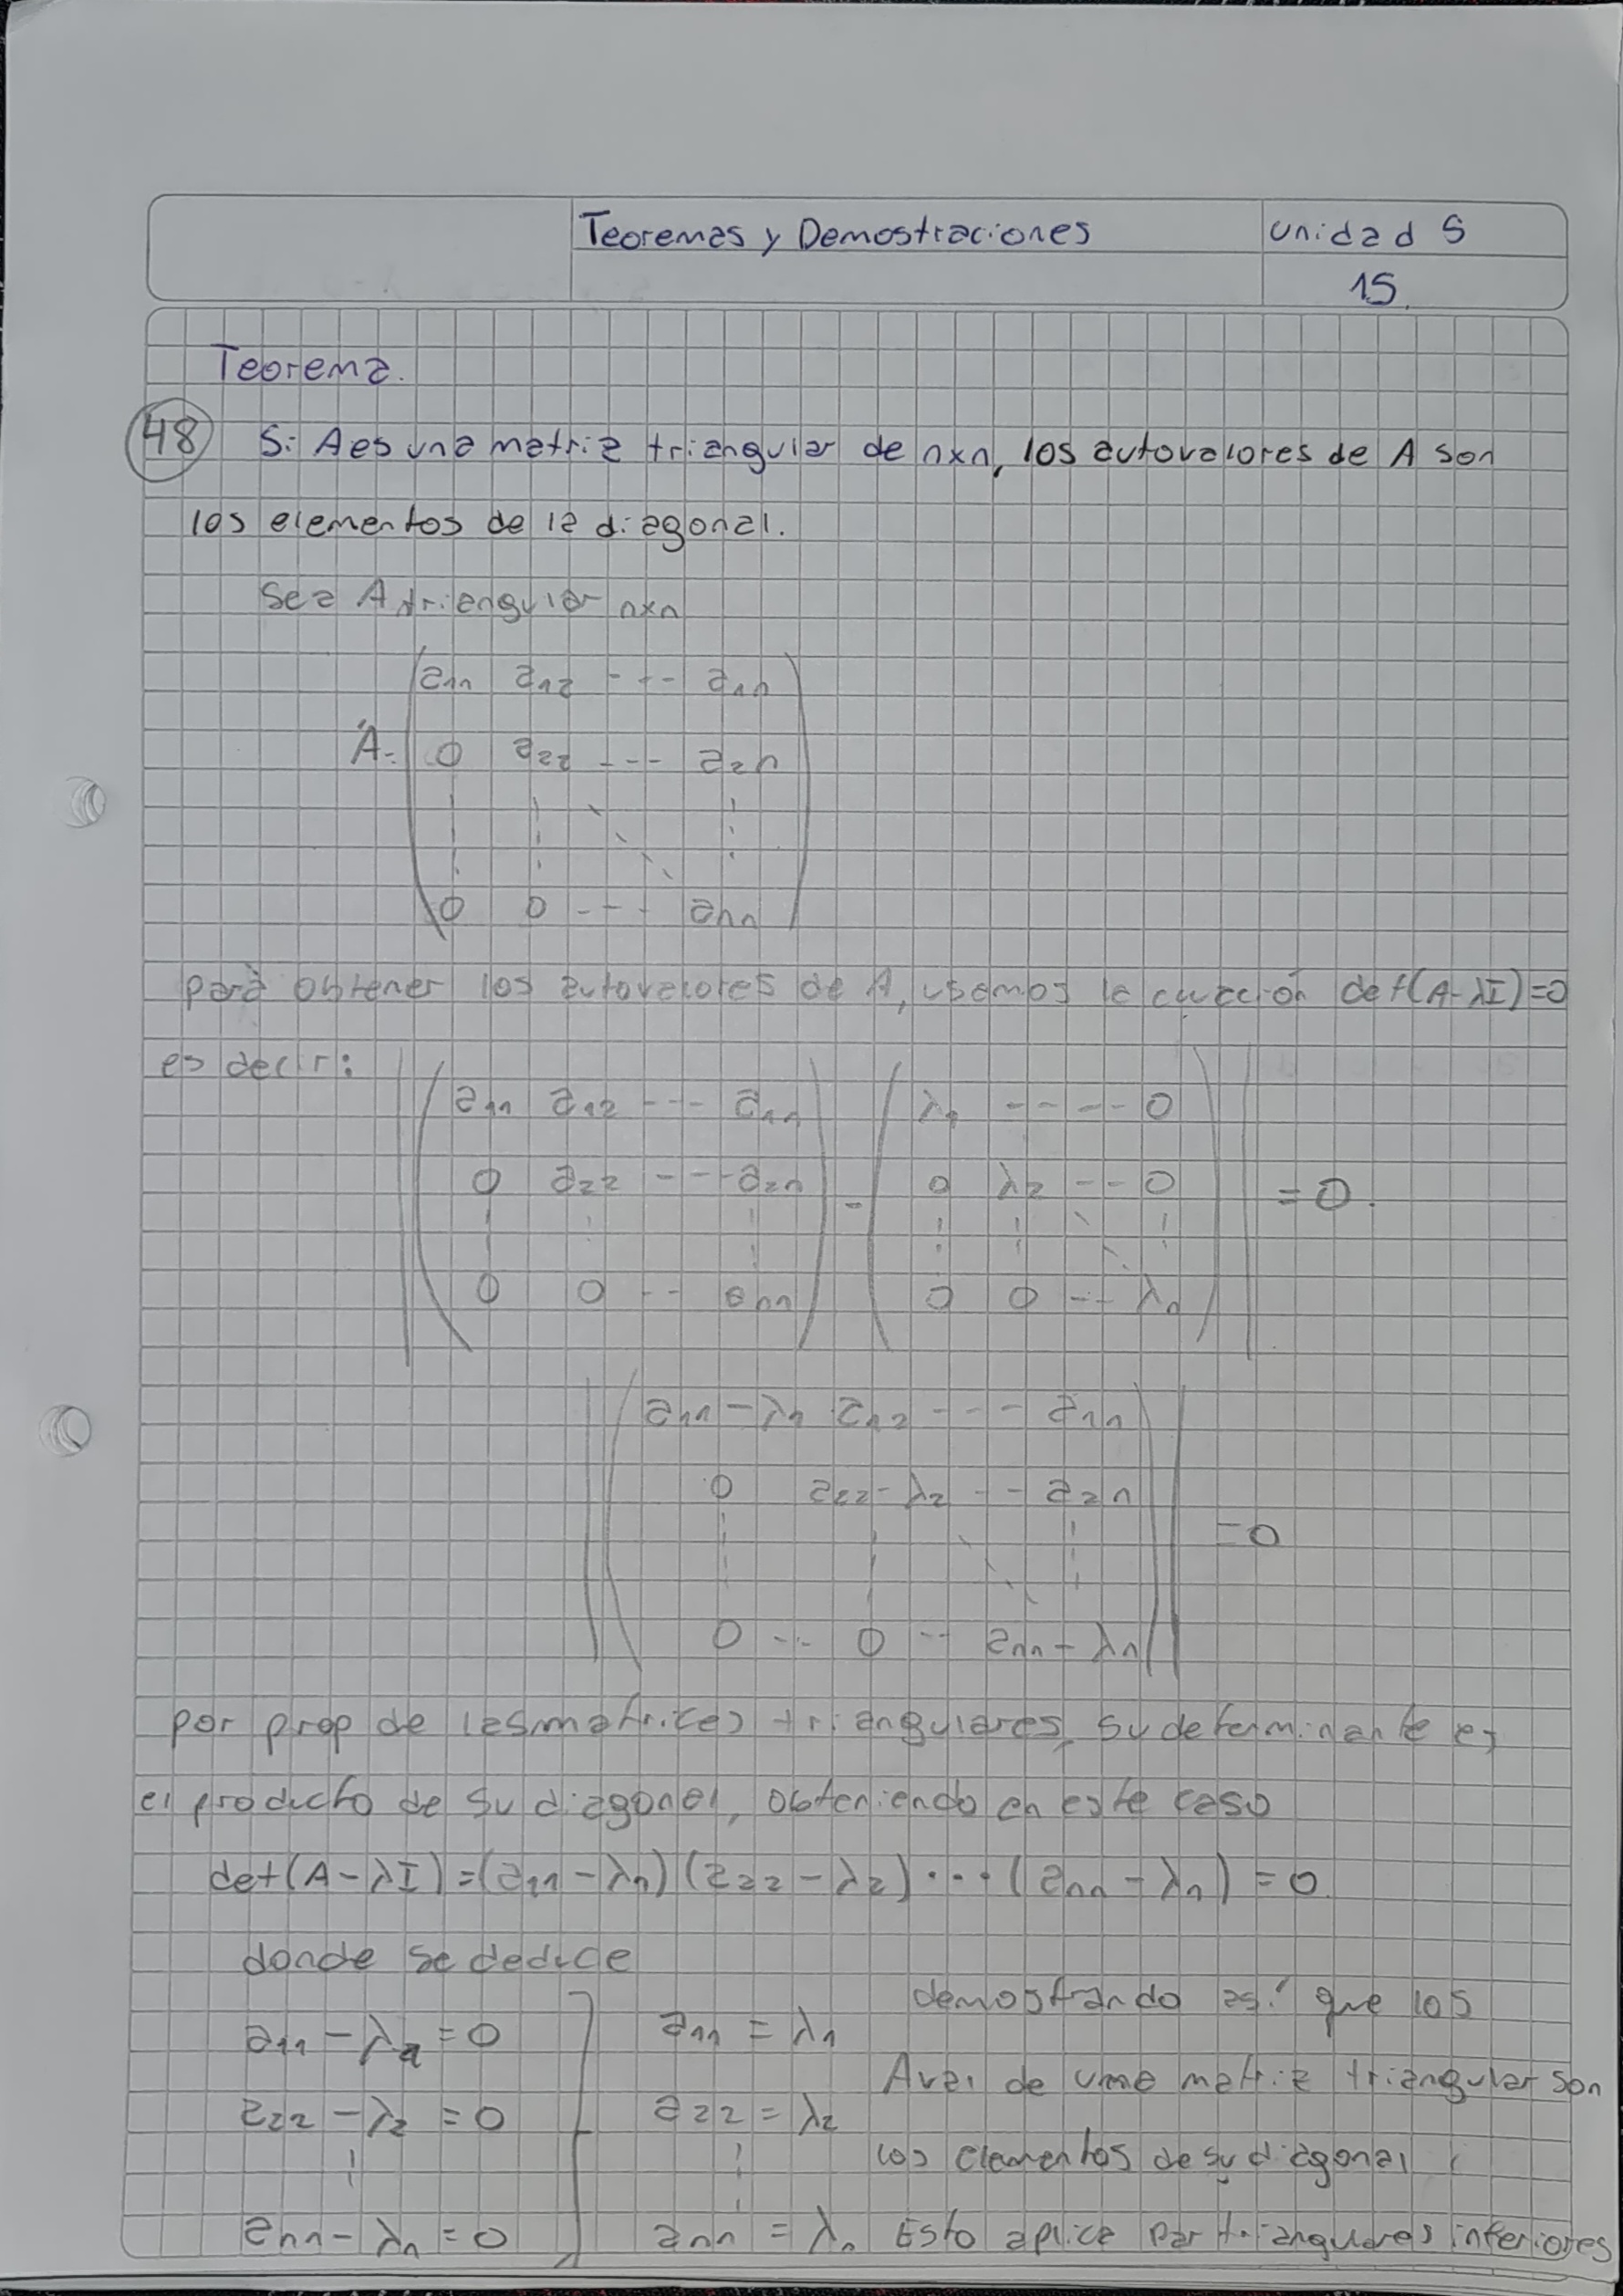 Teoremas y Demostraciones
Unidad 5
15
Teorema.
48 Si A es una matriz triangular de nxn, los autovalores de A son
los elementos de la diagonal.
Sea A triangular nxn
A = ( a11 a12 --- a1n
0 a22 --- a2n
0 0 --- ann )
para obtener los autovalores de A, usamos la cuación det(A-λI)=0
es decir:
| ( a11 a12 --- a1n ) - ( λ1 ---- 0 ) |
0 a22 --- a2n 0 λ2 -- 0 = 0.
0 0 -- ann 0 0 -- λn
| ( a11-λ1 a12 --- a1n ) |
0 a22-λ2 -- a2n
=0
0 -- 0 -- ann-λn
por prop de las matrices triangulares, su determinante es
el producto de su diagonal, obteniendo en este caso
det(A-λI)=(a11-λ1)(a22-λ2)...(ann-λn)=0
donde se deduce
a11-λ1=0
a22-λ2=0
ann-λn=0
a11=λ1
a22=λ2
ann=λn
demostrando así que los
Aval de una matriz triangular son
los elementos de su diagonal
Esto aplica par triangulares inferiores